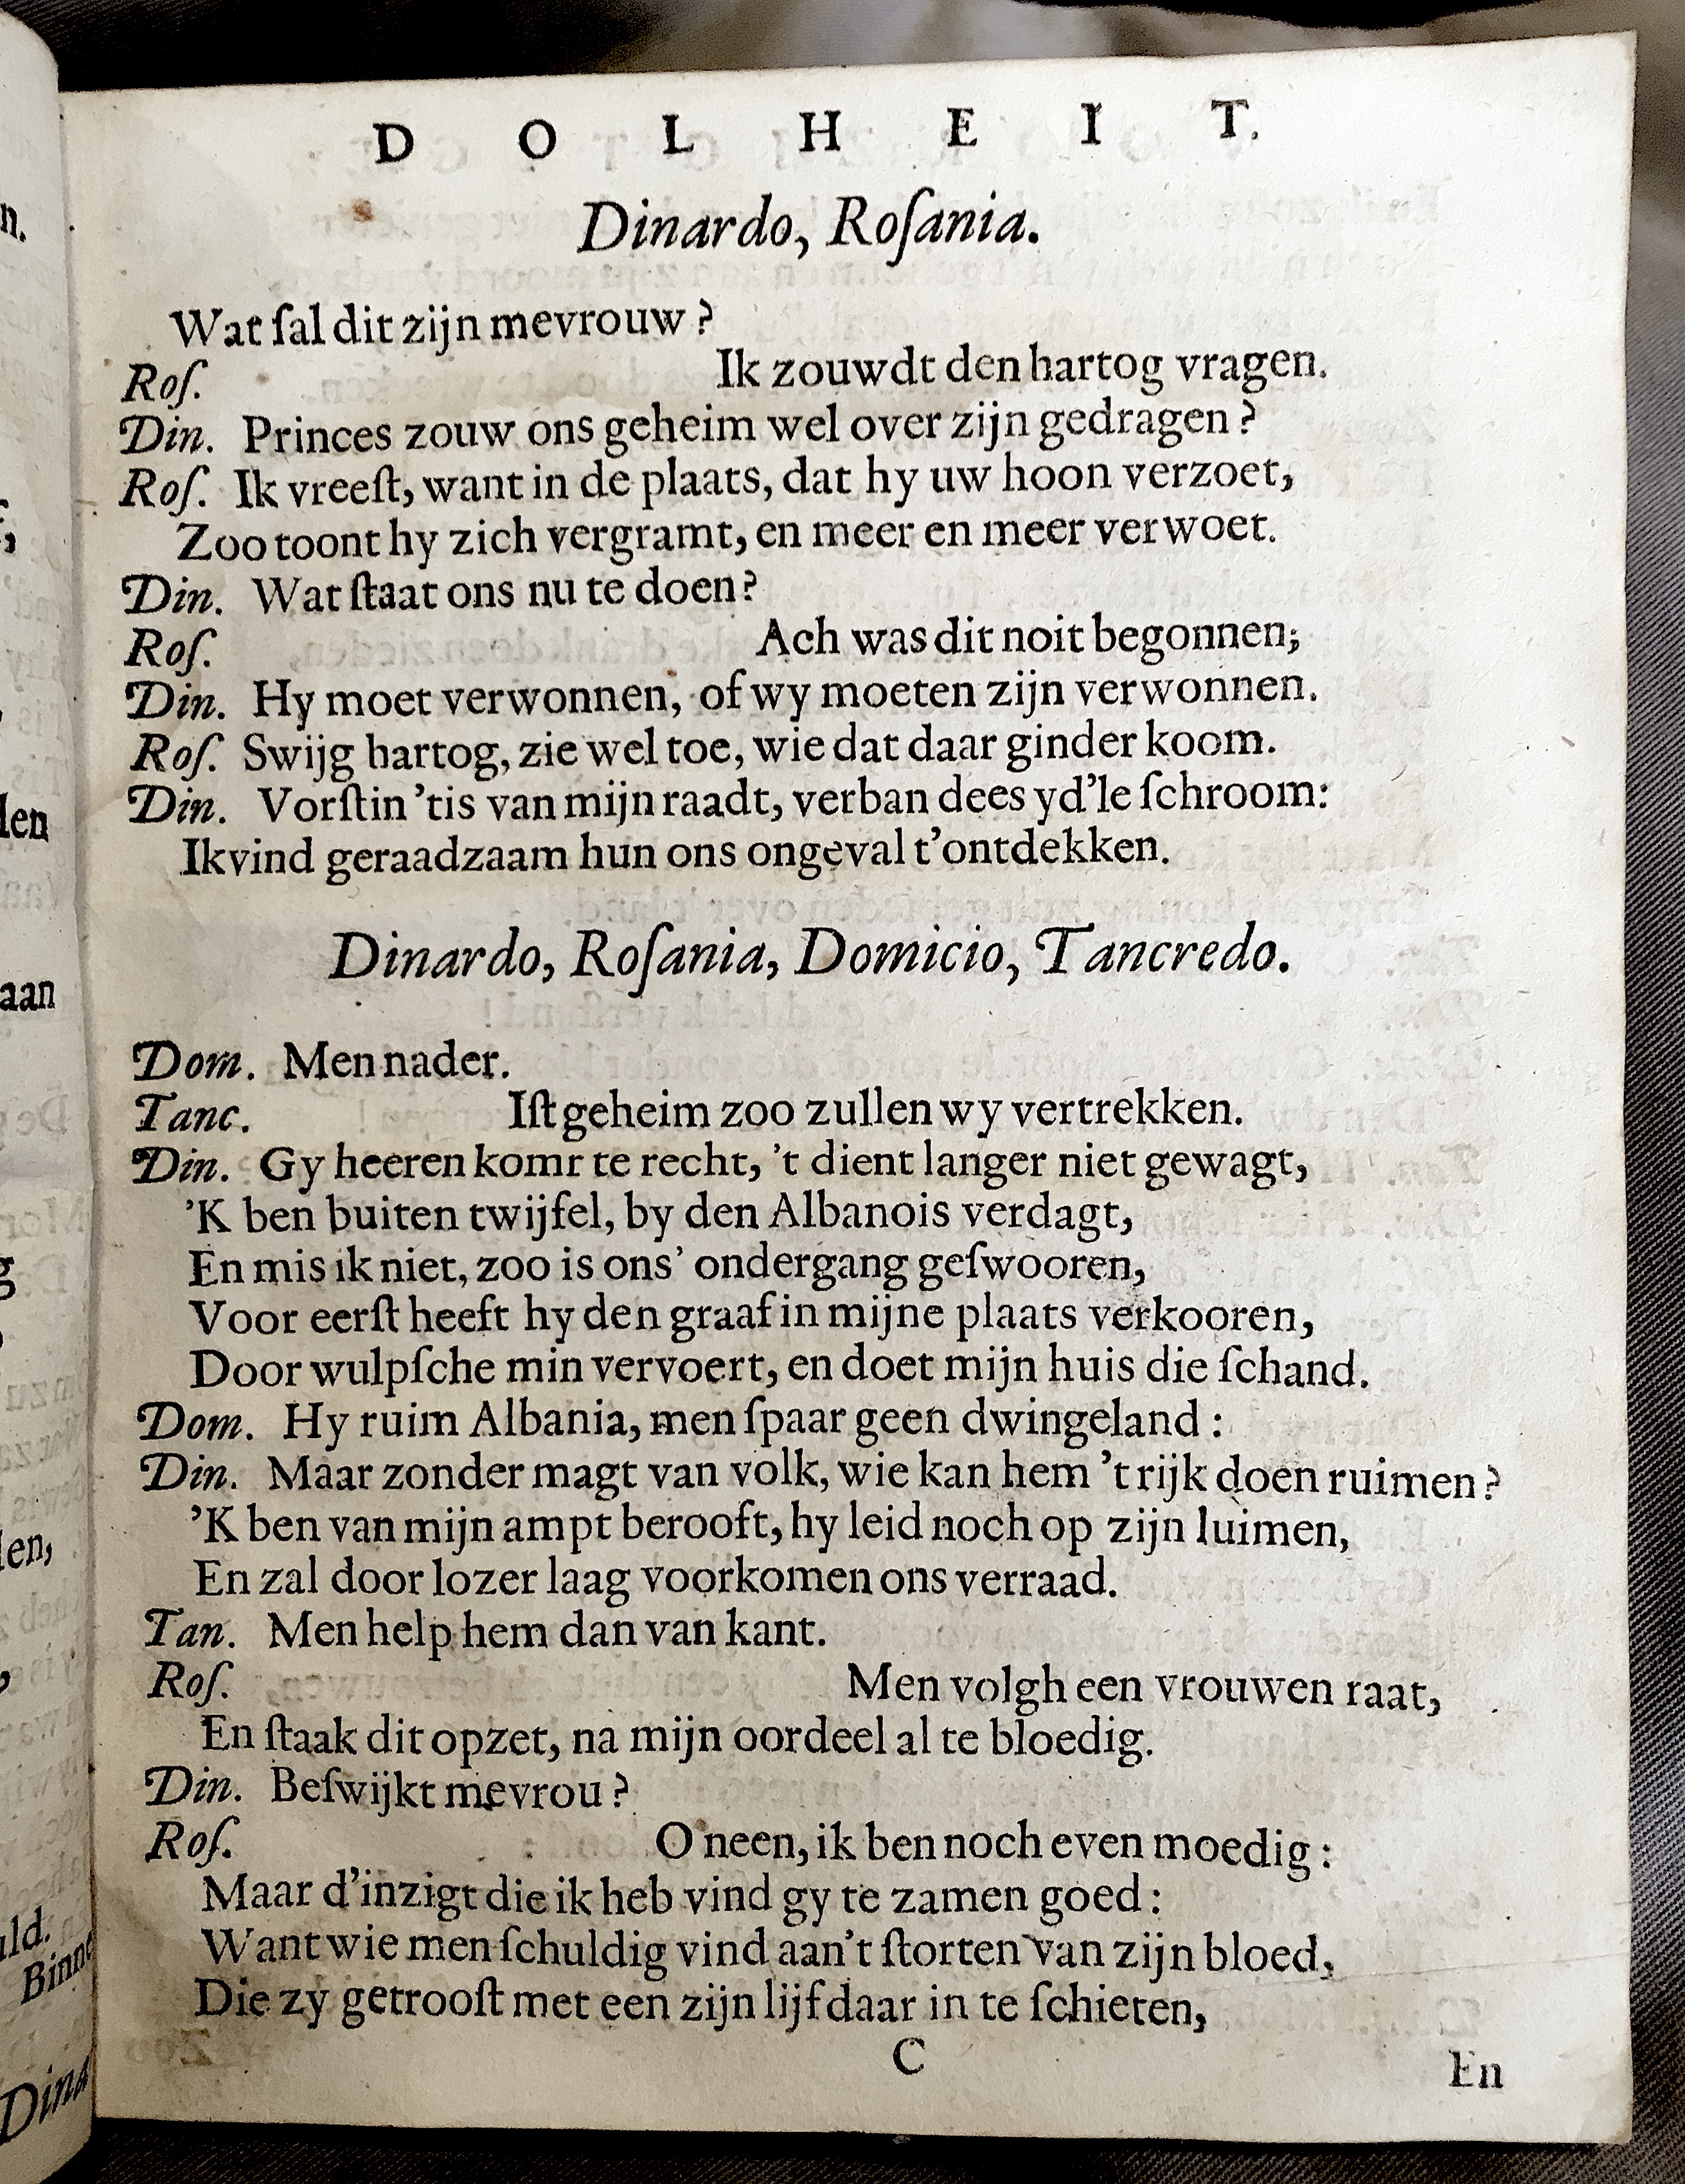 D O L H E I T.
Dinardo, Roſania.
Wat ſal dit zijn mevrouw?
Roſ. Ik zouwdt den hartog vragen.
Din. Princes zouw ons geheim wel over zijn gedragen?
Roſ. Ik vreeſt, want in de plaats, dat hy uw hoon verzoet,
Zoo toont hy zich vergramt, en meer en meer verwoet.
Din. Wat ſtaat ons nu te doen?
Roſ. Ach was dit noit begonnen;
Din. Hy moet verwonnen, of wy moeten zijn verwonnen.
Roſ. Swijg hartog, zie wel toe, wie dat daar ginder koom.
Din. Vorſtin 'tis van mijn raadt, verban dees yd'le ſchroom:
Ik vind geraadzaam hun ons ongeval t'ontdekken.
Dinardo, Roſania, Domicio, Tancredo.
Dom. Men nader.
Tanc. Iſt geheim zoo zullen wy vertrekken.
Din. Gy heeren komr te recht, 't dient langer niet gewagt,
'K ben buiten twijfel, by den Albanois verdagt,
En mis ik niet, zoo is ons' ondergang geſwooren,
Voor eerſt heeft hy den graaf in mijne plaats verkooren,
Door wulpſche min vervoert, en doet mijn huis die ſchand.
Dom. Hy ruim Albania, men ſpaar geen dwingeland:
Din. Maar zonder magt van volk, wie kan hem 't rijk doen ruimen?
'K ben van mijn ampt berooft, hy leid noch op zijn luimen,
En zal door lozer laag voorkomen ons verraad.
Tan. Men help hem dan van kant.
Roſ. Men volgh een vrouwen raat,
En ſtaak dit opzet, na mijn oordeel al te bloedig.
Din. Beſwijkt mevrou?
Roſ. O neen, ik ben noch even moedig:
Maar d'inzigt die ik heb vind gy te zamen goed:
Want wie men ſchuldig vind aan't ſtorten van zijn bloed,
Die zy getrooſt met een zijn lijf daar in te ſchieten,
C
En